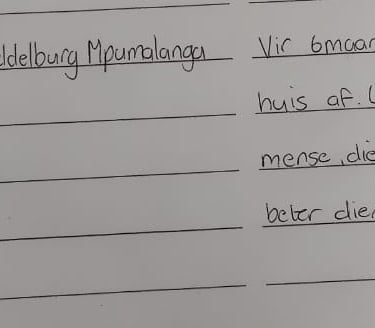 ddelburg Mpumalanga Vir 6maan
huis af.
mense, die
beter die